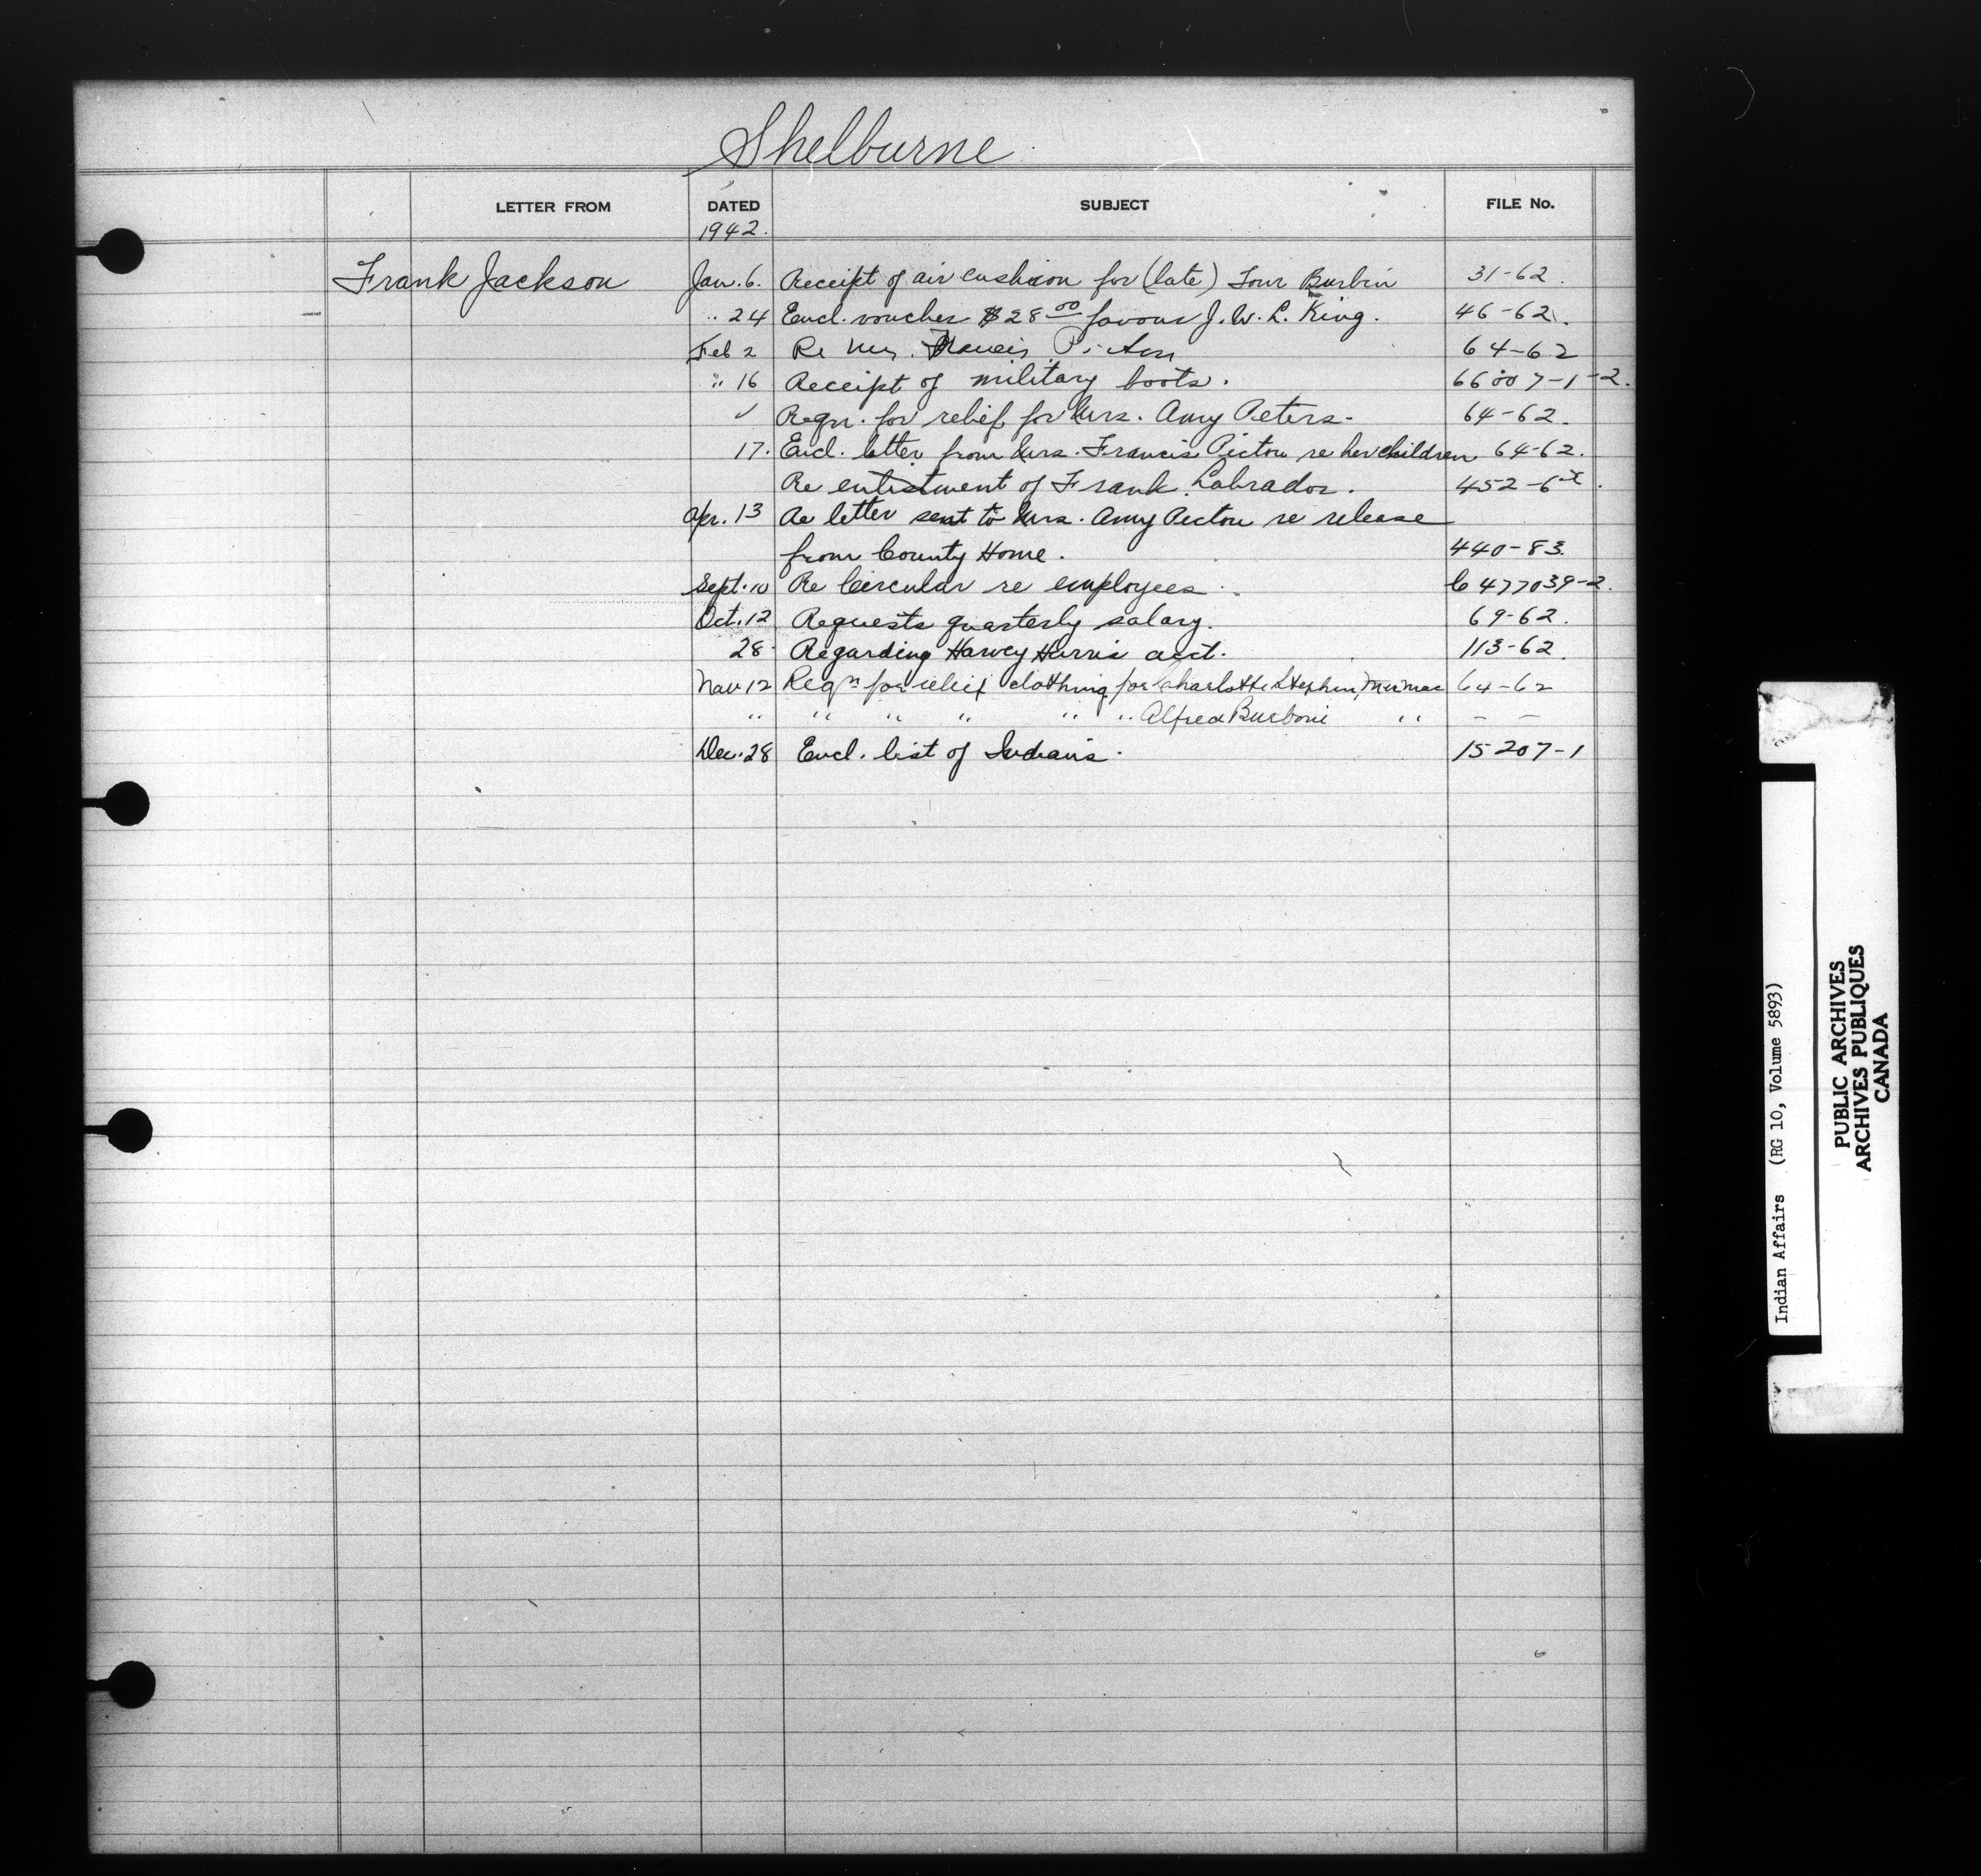 Shelburne
LETTER FROM DATED SUBJECT FILE No.
1942.
Frank Jackson Jan. 6. Receipt of air cushion for (late) Tom Burbin 31-62.
" 24 Encl. voucher $28 00 favour J. W. L. King. 46-62.
Feb 2 Re Mrs. Francis Picton 64-62
" 16 Receipt of military boots. 66007-1-2.
" Reqn. for relief for Mrs. Amy Peters. 64-62.
17. Encl. letter from Mrs. Francis Pictou re her children 64-62.
Re enlistment of Frank Labrador. 452-62.
Apr. 13 Re letter sent to Mrs. Amy Pictou re release
from County Home. 440-83.
Sept. 10 Re Circular re employees. C 477039-2.
Oct. 12 Requests quarterly salary. 69-62.
28. Regarding Harvey Harris acct. 113-62.
Nov 12 Reqn for relief clothing for Charlotte Stephen, Micmac 64-62
" " " " " " Alfred Burbone " - -
Dec. 28 Encl. list of Indians. 15207-1
Indian Affairs (RG 10, Volume 5893)
PUBLIC ARCHIVES
ARCHIVES PUBLIQUES
CANADA